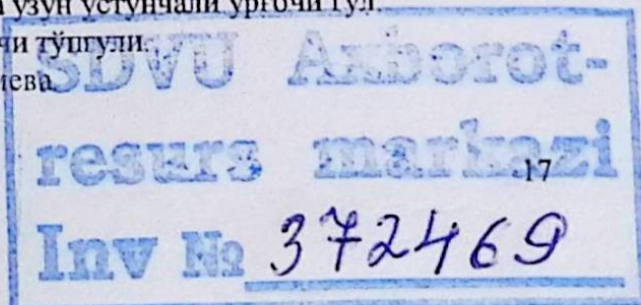 узун устунчали урғочи гул.
чи тўпгули.
иева
SDVU Axborot-
resurs markazi
17
Inv № 372469